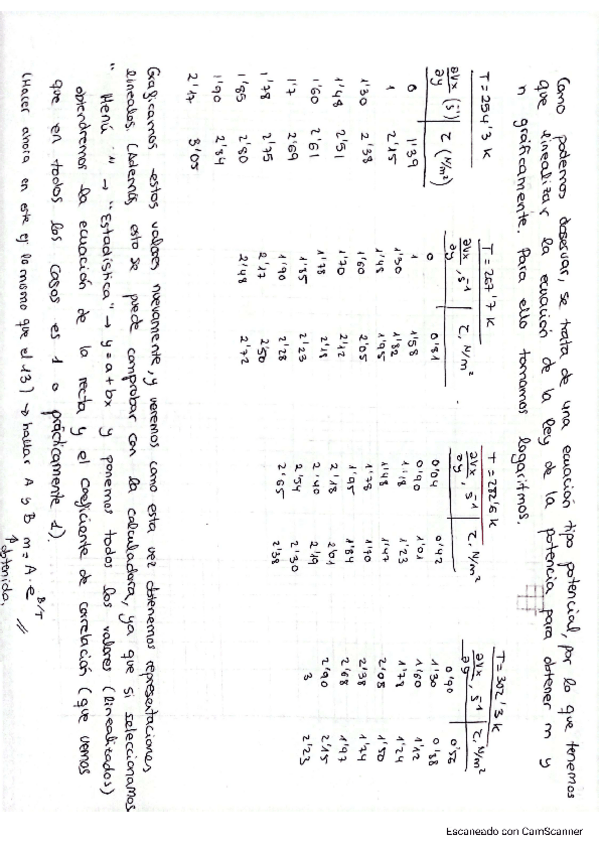 Como podemos observar, se trata de una ecuación tipo potencial, por lo que tenemos
que linealizar la ecuación de la ley de la potencia para obtener m y
n gráficamente. Para ello tomamos logaritmos.
T = 254'3 K
∂Vx/∂y (s⁻¹) τ (N/m²)
0 1'39
1 2'15
1'30 2'38
1'48 2'51
1'60 2'61
1'7 2'69
1'78 2'75
1'85 2'80
1'90 2'84
2'17 3'05
T = 267'7 K
∂Vx/∂y, s⁻¹ τ, N/m²
0 0'81
1 1'58
1'30 1'82
1'48 1'95
1'60 2'05
1'70 2'12
1'78 2'18
1'85 2'23
1'90 2'28
2'17 2'50
2'48 2'72
T = 282'6 K
∂Vx/∂y, s⁻¹ τ, N/m²
0'04 0'42
0'90 1'01
1'18 1'23
1'48 1'47
1'78 1'70
1'95 1'84
2'18 2'01
2'40 2'19
2'54 2'30
2'65 2'38
T = 302'3 K
∂Vx/∂y, s⁻¹ τ, N/m²
0'90 0'56
1'30 0'88
1'60 1'12
1'78 1'24
2'08 1'50
2'38 1'74
2'68 1'97
2'90 2'15
3 2'23
Graficamos estos valores nuevamente, y veremos como esta vez obtenemos representaciones
lineales. (Además, esto se puede comprobar con la calculadora, ya que si seleccionamos
"Menú" → "Estadística" → y = a + bx y ponemos todos los valores (linealizados)
obtendremos la ecuación de la recta y el coeficiente de correlación (que vemos
que en todos los casos es 1 o prácticamente 1).
(Hacer ahora en este ej lo mismo que el 13) → hallar A y B m = A · e^B/T
obtenida.
Escaneado con CamScanner